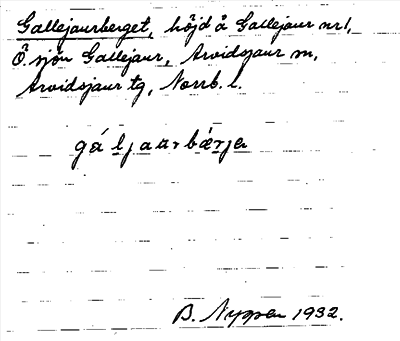 Gallejaurberget, höjd å Gallejaur nr 1,
Ö. sjön Gallejaur, Arvidsjaur sn,
Arvidsjaur tg, Norrb. l.
gáljaarbærja
B. Nygren 1932.